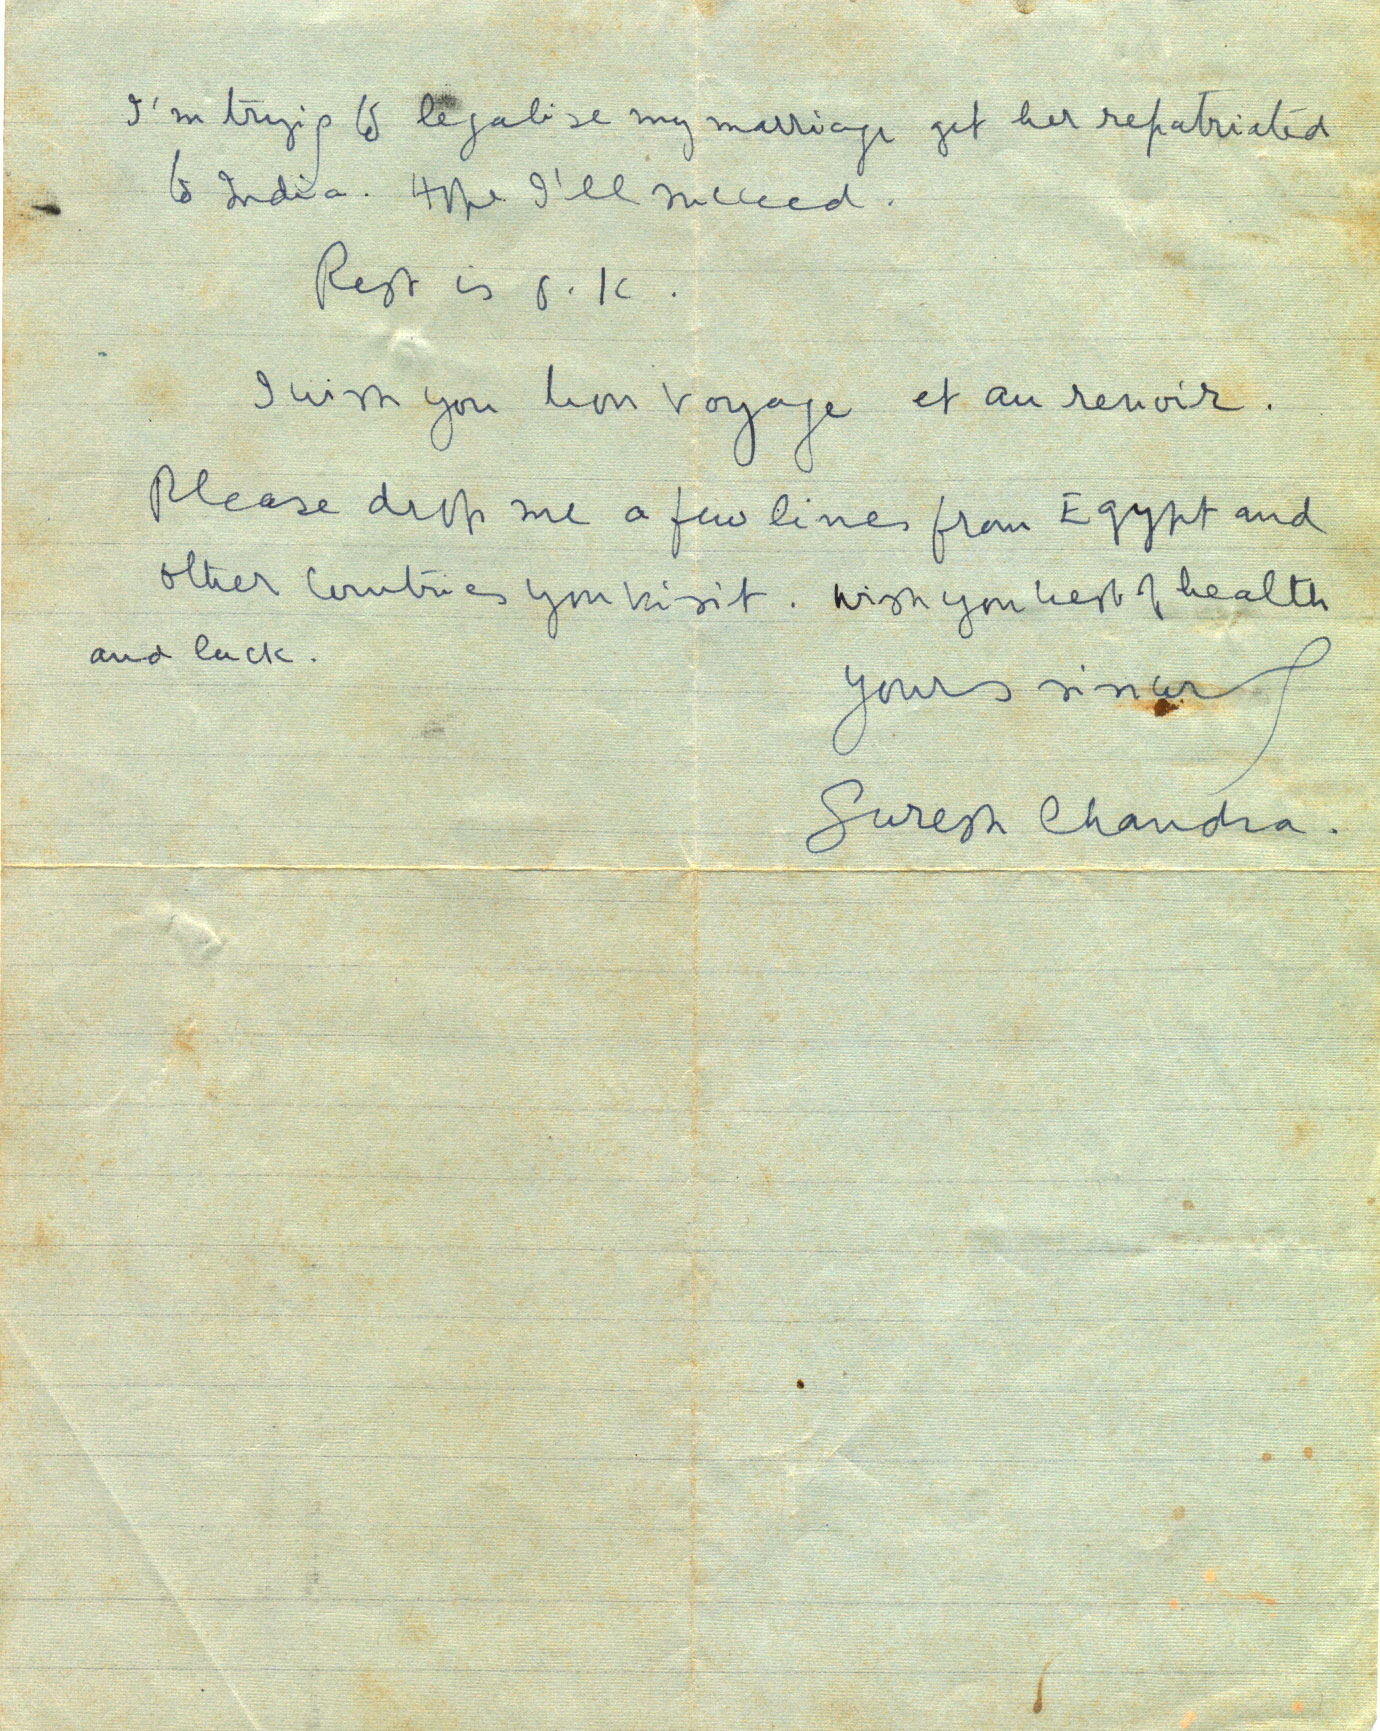 I'm trying to legalise my marriage get her repatriated
to India. Hope I'll succeed.
Rest is O.K.
I wish you bon voyage et au revoir.
Please drop me a few lines from Egypt and
other countries you visit. Wish you best of health
and luck.
Yours sincerely
Suresh Chandra.